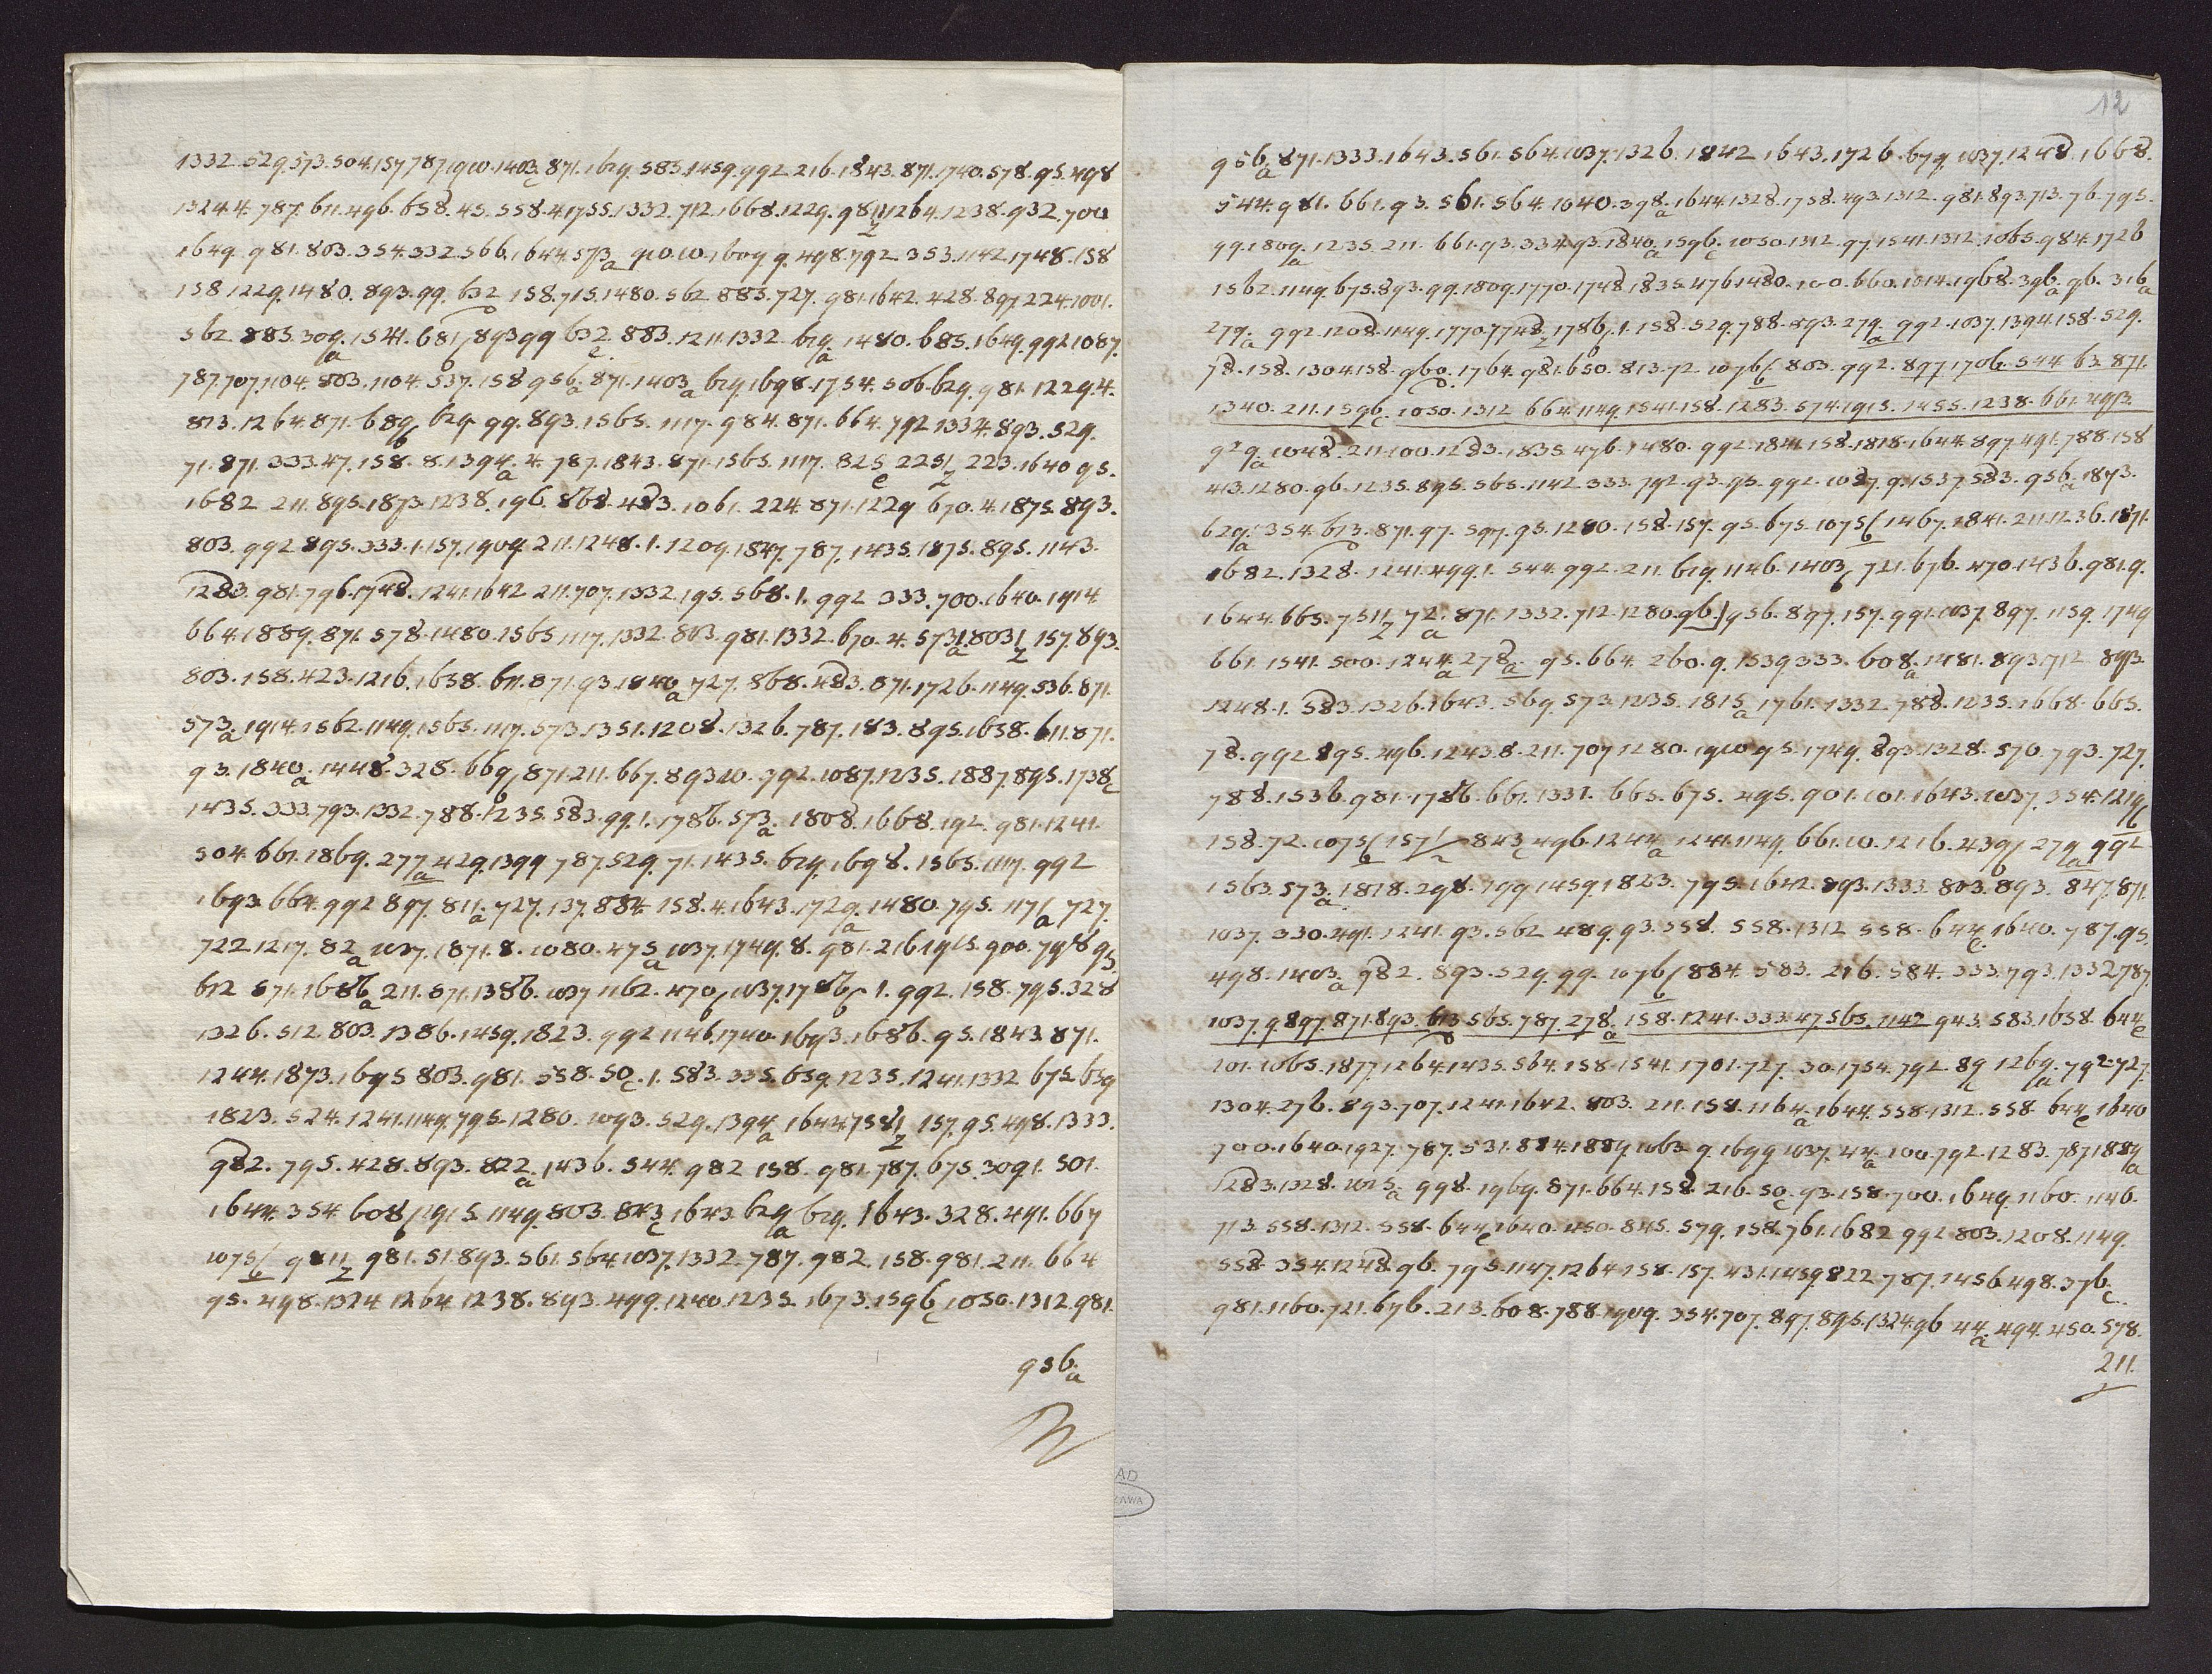 1332.529.573.504.157.787.1910.1403c.871.1629.583.1459.992.216.1843.871.1740.578.95.498
1324.4.787.611.496.658.45.558.4.1755.1332.712.1668.1229.981z.1264.1238.932.700
1649.981.803.354.332.566.1644.573a.910.10.1609.9.498.792.353.1142.1748.158
158.1229.1480.893.99.632.158.715.1480.562.885.727.981.1642.428.897.224.1001.
562.885.309a.1541.681b.893.99.632c.883.1211.1332.629a.1480.685.1649.992.1087.
787.707.1104.803.1104.537.158.956a.871.1403a.629.1698.1754.506.629.981.1229.4.
813.1264.871.689b.629.99.893.1565.1117.984.871.664.792.1334.893.529.
71.871.333.47.158.8.1394a.4.787.1843.871.1565.1117.825c.2251z.223.1640.95.
1682.211.895.1873.1238.196.868.483.1061.224.871.1229.670.4.1875.893.
803.992.895.333.1.157.1909.211.1248.1.1209.1847.787.1435.1875.895.1143.
1283.981.796.1748.1241.1642.211.707.1332.195.568.1.992.333.700.1640.1914.
664.1889.871.578.1480.1565.1117.1332.803.981.1332.670.4.573a.803z.157.893.
803.158.423.1216.1658.611.871.93.1840a.727.868.483.871.1726.1149.536.871.
573a.1914.1562.1149.1565.1117.573.1351.1208.1326.787.183.895.1658.611.871.
93.1840a.1448.328.669b.871.211.667.893.10.792.1087.1235.1887.895.1738c
1435.333.793.1332.788.1235.583.99.1.1786.573a.1808.1668.192.981.1241.
504.661.1869.277a.429.1399.787.529.71.1435.629.1698.1565.1117.992
1693.664.992.897.811a.727.137.884.158.4.1643.1729a.1480.795.117a.727.
722.1217.82a.1037.1871.8.1080.475a.1037.1749.8.981.216.1915.900.798.95
612.871.1686a.211.871.1386.1037.1162.470b.1037.1786b.1.992.158.795.328
1326.512.803.1386.1459.1823.992.1146.1740.1693.1686.95.1843.871.
1244.1873.1695.803.981.558.50c.1.583.335.659.1235.1241.1332.675.659
1823.524.1241.1149.795.1280.1093.529.1394a.1644.7581z.157.95.498.1333.
982.795.428.893.822a.1436.544.982.158.981.787.675.309.1.501.
1644.354.608b.1915.1149.803.843c.1643.629a.629.1643.328.491.667
1075b.9811z.981.51.893.561.564.1037.1332.787.982.158.981.211.664
95.498.1324.1264.1238.893.499.1240.1235.1673.1596c.1050.1312.981.
956a
12
956a.871.1333.1643.561.564.1037.1326.1842.1643.1726.679.1037.1248.1668.
544.981.661.93.561.564.1040.398a.1644.1328.1758.493.1312.981.893.713.76.795.
99.1809a.1235.211.661.93.334.93.1840a.1596c.1050.1312.97.1541.1312.1065.984.1726
1562.1149.675.893.99.1809.1770.1748.1835.476.1480.100.660.1014.1968.396a.96.316a
279a.992.1208.1149.1770.7748z.1786b.1.158.529.788.893.279a.992.1037.1394.158.529.
78.158.1304.158.960.1764.981.650.813.72.1076b.803.992.897.1706.544.63.871.
1340.211.1596c.1050.1312.664.1149.1541.158.1283.574.1915.1455.1238.661.493.
929a.1048.211.100.1283.1835.476.1480.992.1841.158.1818.1644.897.491.788.158
413.1280.96.1235.895.565.1142.333.792.93.95.992.1087.9.1537.583.956a.1873.
629a.354.613.871.97.597.95.1280.158.157.95.675.1075b.1467.1841.211.1236.1871.
1682.1328.1241.499.1.544.992.211.619.1146.1403b.721.676.470.1436.981.9.
1644.665.7511z.72a.871.1332.712.1280.96.956.897.157.991.1037.897.1159.1749
661.1541.500.1244a.278a.95.664.260.9.1539.333.608a.1481.893.712.893.
1248.1.583.1326.1643.569.573.1235.1815a.1761.1332.788.1235.1668.665.
78.992.895.496.1243.8.211.707.1280.1910.95.1749.893.1328.570.793.727.
788.1536.981.1786.661.1331.665.675.495.901.101.1643.1037.354.1219b
158.72.1075b.157z.843c.496.1244a.1241.1149.661.10.1216.439b.279a.992
1563.573a.1818.298.799.1459.1823.795.1642.893.1333.803.893.847.871.
1037.330.491.1241.93.562.489.93.558.558.1312.558.644c.1640.787.95.
498.1403a.982.893.529.99.1076b.884.583.216.584.333.793.1332.787.
1037.9.897.871.893.613.565.787.278a.158.1241.333.47.565.1142.943.583.1658.644c
101.1065.1877.1264.1435.564.158.1541.1701.727.30.1754.792.89c.1269a.792.727.
1304.276.893.707.1241.1642.803.211.158.1164a.1644.558.1312.558.644c.1640
700.1640.1927.787.531.884.1889.1063.9.1699.1037.44a.100.792.1283.787.1889a
1283.1328.1025a.998.1969.871.664.158.216.50c.93.158.700.1649.1160.1146.
713.558.1312.558.644c.1640.450.845.579.158.761.1682.992.803.1208.1149.
558.354.1248.96.795.1147.1264.158.157.431.1459.822.787.1456.498.376c
981.1160.721.676.213.608.788.1909.354.707.897.895.1324.96.44a.494.450.578.
211.